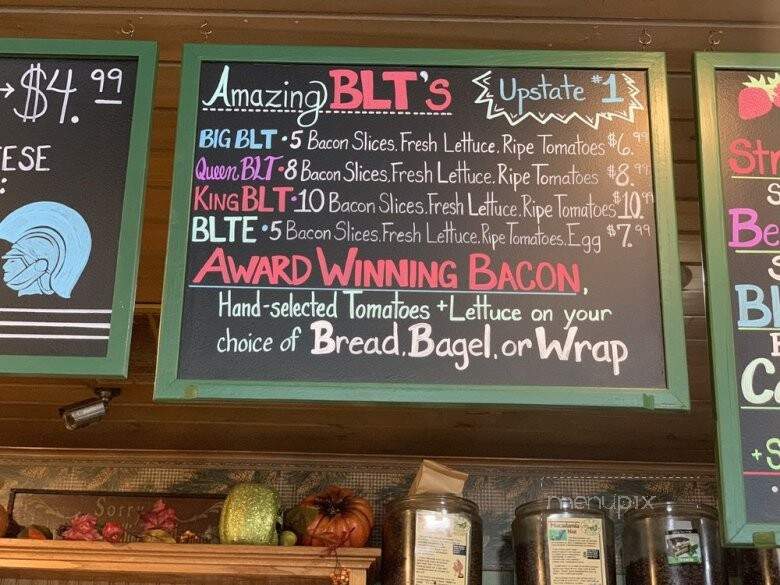 $4.99
ESE
:
Amazing BLT's
Upstate #1
BIG BLT • 5 Bacon Slices, Fresh Lettuce, Ripe Tomatoes $6.99
Queen BLT • 8 Bacon Slices, Fresh Lettuce, Ripe Tomatoes $8.99
KING BLT • 10 Bacon Slices, Fresh Lettuce, Ripe Tomatoes $10.99
BLTE • 5 Bacon Slices, Fresh Lettuce, Ripe Tomatoes, Egg $7.99
AWARD WINNING BACON,
Hand-selected Tomatoes + Lettuce on your
choice of Bread, Bagel, or Wrap
Str
S
Be
S
Bl
Ca
+S
Sorry
menupix
Macadamia
Nut